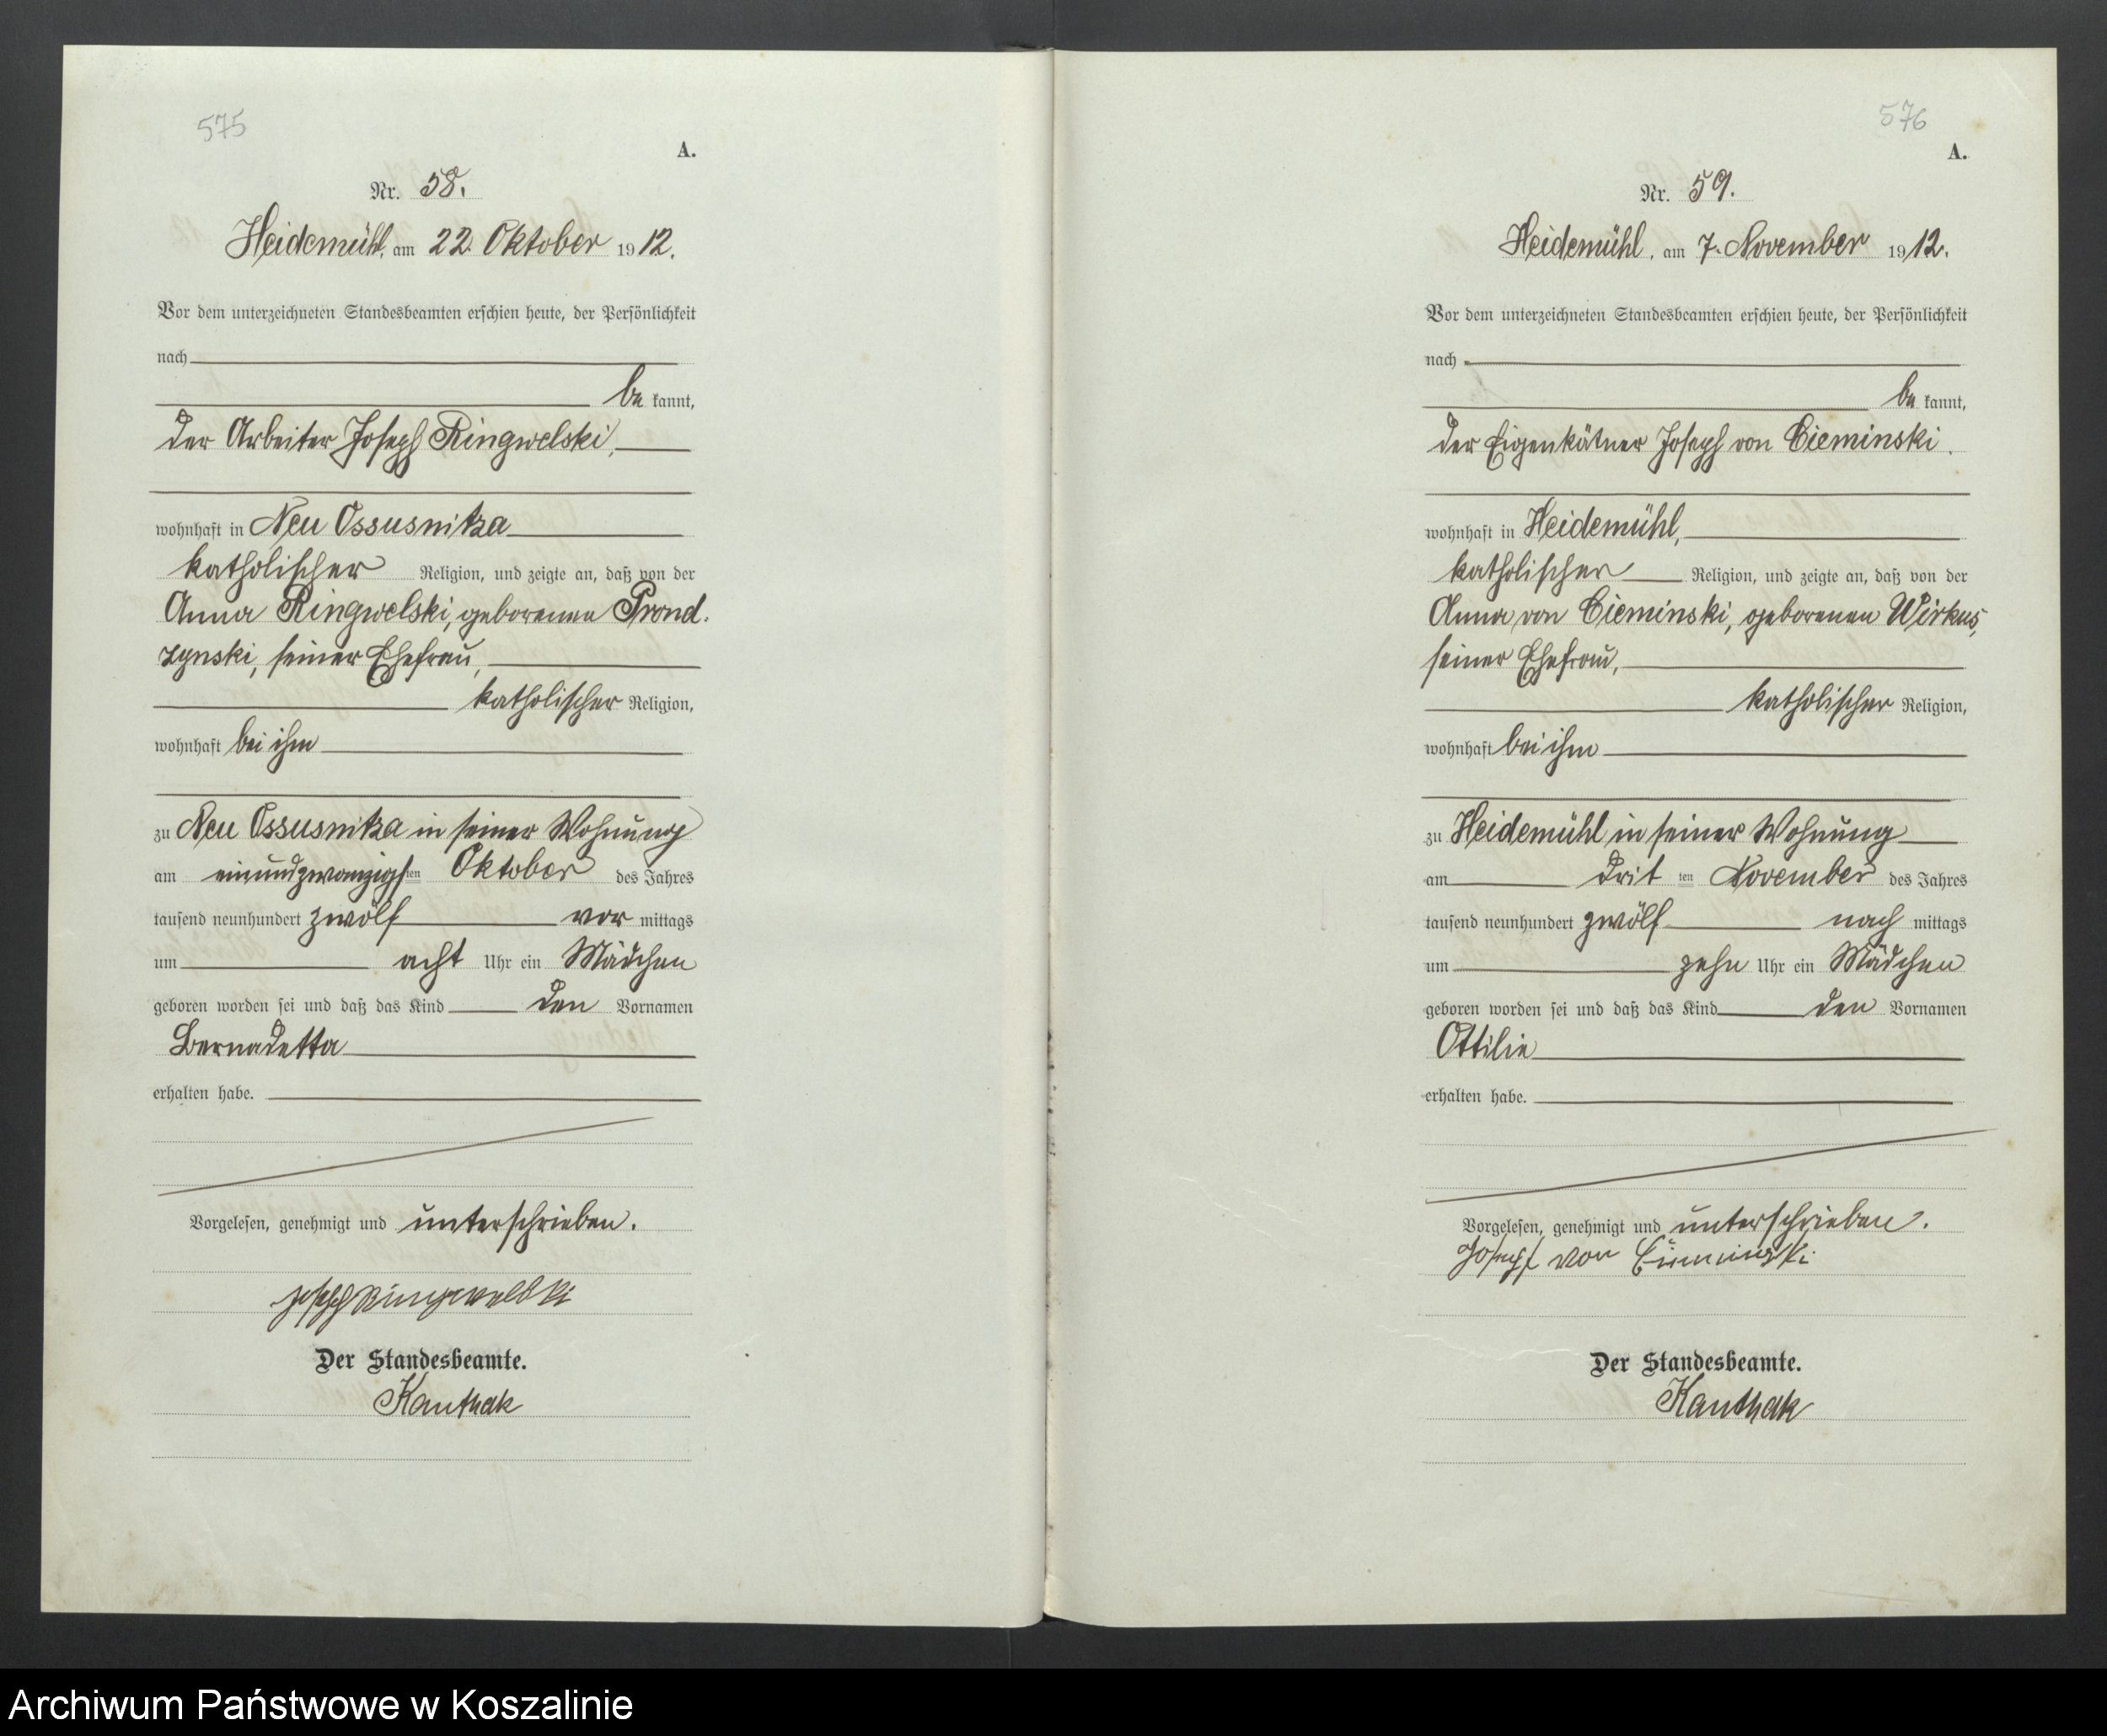 575
A.
Nr. 58.
Heidemühl, am 22. Oktober 1912.
Vor dem unterzeichneten Standesbeamten erschien heute, der Persönlichkeit
nach
be kannt,
der Arbeiter Joseph Ringwelski,
wohnhaft in Neu Ossusnitza
katholischer Religion, und zeigte an, daß von der
Anna Ringwelski, geborenen Prond-
zynski, seiner Ehefrau,
katholischer Religion,
wohnhaft bei ihm
zu Neu Ossusnitza in seiner Wohnung
am einundzwanzigsten Oktober des Jahres
tausend neunhundert zwölf vor mittags
um acht Uhr ein Mädchen
geboren worden sei und daß das Kind den Vornamen
Bernadetta
erhalten habe.
Vorgelesen, genehmigt und unterschrieben.
Joseph Ringwelski
Der Standesbeamte.
Kanthak
576
A.
Nr. 59.
Heidemühl, am 7. November 1912.
Vor dem unterzeichneten Standesbeamten erschien heute, der Persönlichkeit
nach
be kannt,
der Eigenkätner Joseph von Cieminski.
wohnhaft in Heidemühl,
katholischer Religion, und zeigte an, daß von der
Anna von Cieminski, geborenen Wirkus,
seiner Ehefrau,
katholischer Religion,
wohnhaft bei ihm
zu Heidemühl in seiner Wohnung
am drit ten November des Jahres
tausend neunhundert zwölf nach mittags
um zehn Uhr ein Mädchen
geboren worden sei und daß das Kind den Vornamen
Ottilie
erhalten habe.
Vorgelesen, genehmigt und unterschrieben.
Joseph von Cieminski
Der Standesbeamte.
Kanthak
Archiwum Państwowe w Koszalinie